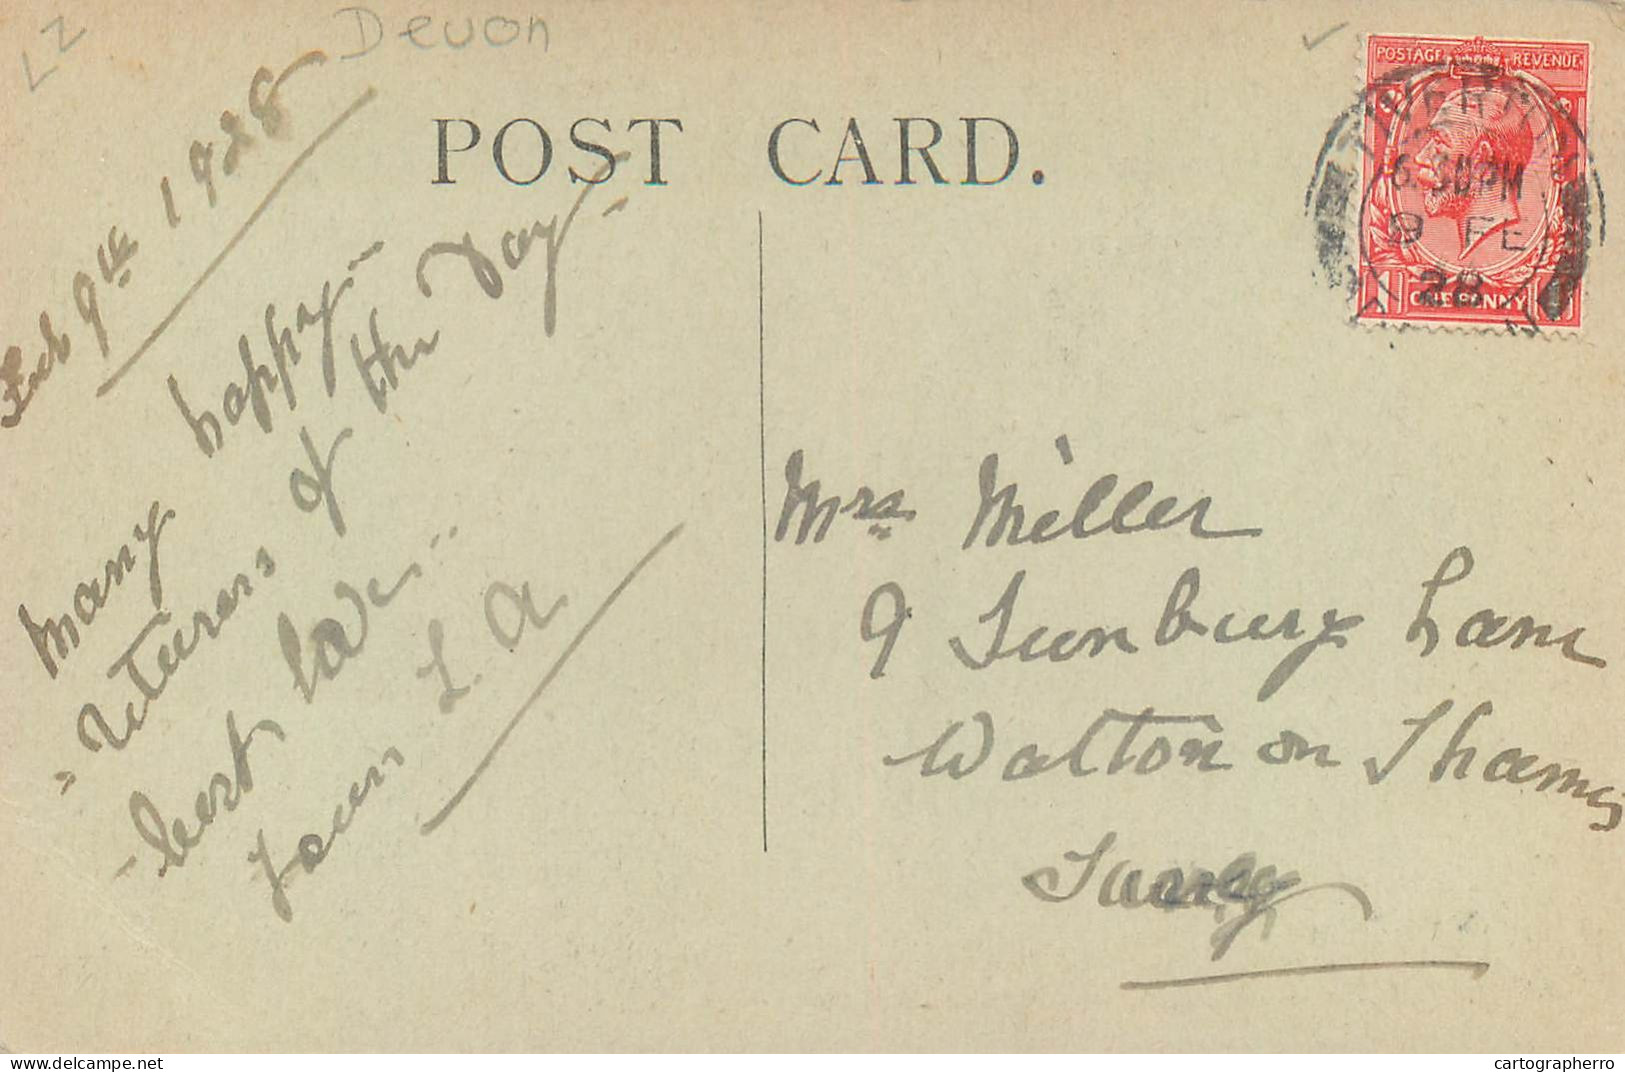 LZ
Devon
POST CARD.
Feb 9th 1928
Many happy
returns of the Day
best love
from L. A
POSTAGE REVENUE
ONE PENNY
TIVERTON
6.30PM
9 FE
28
DEVON
Mrs Miller
9 Sunbury Lane
Walton on Thames
Surrey
delcampe.net
cartographerro